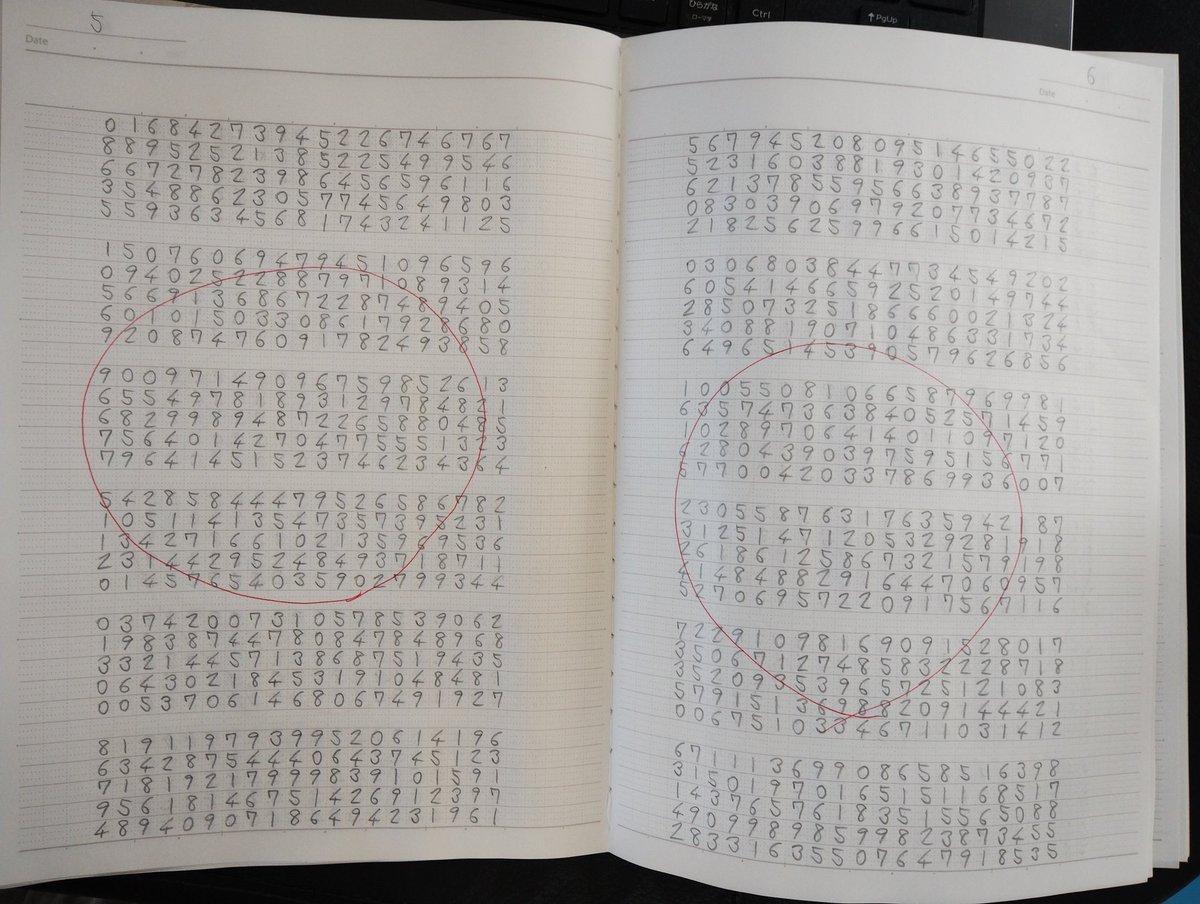 ひらがな
ローマ字
Ctrl
↑PgUp
5
Date
0 1 6 8 4 2 7 3 9 4 5 2 2 6 7 4 6 7 6 7
8 8 9 5 2 5 2 1 3 8 5 2 2 5 4 9 9 5 4 6
6 6 7 2 7 8 2 3 9 8 6 4 5 6 5 9 6 1 1 6
3 5 4 8 8 6 2 3 0 5 7 7 4 5 6 4 9 8 0 3
5 5 9 3 6 3 4 5 6 8 1 7 4 3 2 4 1 1 2 5
1 5 0 7 6 0 6 9 4 7 9 4 5 1 0 9 6 5 9 6
0 9 4 0 2 5 2 2 8 8 7 9 7 1 0 8 9 3 1 4
5 6 6 9 1 3 6 8 6 7 2 2 8 7 4 8 9 4 0 5
6 0 1 0 1 5 0 3 3 0 8 6 1 7 9 2 8 6 8 0
9 2 0 8 7 4 7 6 0 9 1 7 8 2 4 9 3 8 5 8
9 0 0 9 7 1 4 9 0 9 6 7 5 9 8 5 2 6 1 3
6 5 5 4 9 7 8 1 8 9 3 1 2 9 7 8 4 8 2 1
6 8 2 9 9 8 9 4 8 7 2 2 6 5 8 8 0 4 8 5
7 5 6 4 0 1 4 2 7 0 4 7 7 5 5 5 1 3 2 3
7 9 6 4 1 4 5 1 5 2 3 7 4 6 2 3 4 3 6 4
5 4 2 8 5 8 4 4 4 7 9 5 2 6 5 8 6 7 8 2
1 0 5 1 1 4 1 3 5 4 7 3 5 7 3 9 5 2 3 1
1 3 4 2 7 1 6 6 1 0 2 1 3 5 9 6 9 5 3 6
2 3 1 4 4 2 9 5 2 4 8 4 9 3 7 1 8 7 1 1
0 1 4 5 7 6 5 4 0 3 5 9 0 2 7 9 9 3 4 4
0 3 7 4 2 0 0 7 3 1 0 5 7 8 5 3 9 0 6 2
1 9 8 3 8 7 4 4 7 8 0 8 4 7 8 4 8 9 6 8
3 3 2 1 4 4 5 7 1 3 8 6 8 7 5 1 9 4 3 5
0 6 4 3 0 2 1 8 4 5 3 1 9 1 0 4 8 4 8 1
0 0 5 3 7 0 6 1 4 6 8 0 6 7 4 9 1 9 2 7
8 1 9 1 1 9 7 9 3 9 9 5 2 0 6 1 4 1 9 6
6 3 4 2 8 7 5 4 4 4 0 6 4 3 7 4 5 1 2 3
7 1 8 1 9 2 1 7 9 9 9 8 3 9 1 0 1 5 9 1
9 5 6 1 8 1 4 6 7 5 1 4 2 6 9 1 2 3 9 7
4 8 9 4 0 9 0 7 1 8 6 4 9 4 2 3 1 9 6 1
6
Date
5 6 7 9 4 5 2 0 8 0 9 5 1 4 6 5 5 0 2 2
5 2 3 1 6 0 3 8 8 1 9 3 0 1 4 2 0 9 3 7
6 2 1 3 7 8 5 5 9 5 6 6 3 8 9 3 7 7 8 7
0 8 3 0 3 9 0 6 9 7 9 2 0 7 7 3 4 6 7 2
2 1 8 2 5 6 2 5 9 9 6 6 1 5 0 1 4 2 1 5
0 3 0 6 8 0 3 8 4 4 7 7 3 4 5 4 9 2 0 2
6 0 5 4 1 4 6 6 5 9 2 5 2 0 1 4 9 7 4 4
2 8 5 0 7 3 2 5 1 8 6 6 6 0 0 2 1 3 2 4
3 4 0 8 8 1 9 0 7 1 0 4 8 6 3 3 1 7 3 4
6 4 9 6 5 1 4 5 3 9 0 5 7 9 6 2 6 8 5 6
1 0 0 5 5 0 8 1 0 6 6 5 8 7 9 6 9 9 8 1
6 3 5 7 4 7 3 6 3 8 4 0 5 2 5 7 1 4 5 9
1 0 2 8 9 7 0 6 4 1 4 0 1 1 0 9 7 1 2 0
6 2 8 0 4 3 9 0 3 9 7 5 9 5 1 5 6 7 7 1
6 7 7 0 0 4 2 0 3 3 7 8 6 9 9 3 6 0 0 7
2 3 0 5 5 8 7 6 3 1 7 6 3 5 9 4 2 1 8 7
3 1 2 5 1 4 7 1 2 0 5 3 2 9 2 8 1 9 1 8
2 6 1 8 6 1 2 5 8 6 7 3 2 1 5 7 9 1 9 8
4 1 4 8 4 8 8 2 9 1 6 4 4 7 0 6 0 9 5 7
5 2 7 0 6 9 5 7 2 2 0 9 1 7 5 6 7 1 1 6
7 2 2 9 1 0 9 8 1 6 9 0 9 1 5 2 8 0 1 7
3 5 0 6 7 1 2 7 4 8 5 8 3 2 2 2 8 7 1 8
3 5 2 0 9 3 5 3 9 6 5 7 2 5 1 2 1 0 8 3
5 7 9 1 5 1 3 6 9 8 8 2 0 9 1 4 4 4 2 1
0 0 6 7 5 1 0 3 3 4 6 7 1 1 0 3 1 4 1 2
6 7 1 1 1 3 6 9 9 0 8 6 5 8 5 1 6 3 9 8
3 1 5 0 1 9 7 0 1 6 5 1 5 1 1 6 8 5 1 7
1 4 3 7 6 5 7 6 1 8 3 5 1 5 5 6 5 0 8 8
4 9 0 9 9 8 9 8 5 9 9 8 2 3 8 7 3 4 5 5
2 8 3 3 1 6 3 5 5 0 7 6 4 7 9 1 8 5 3 5